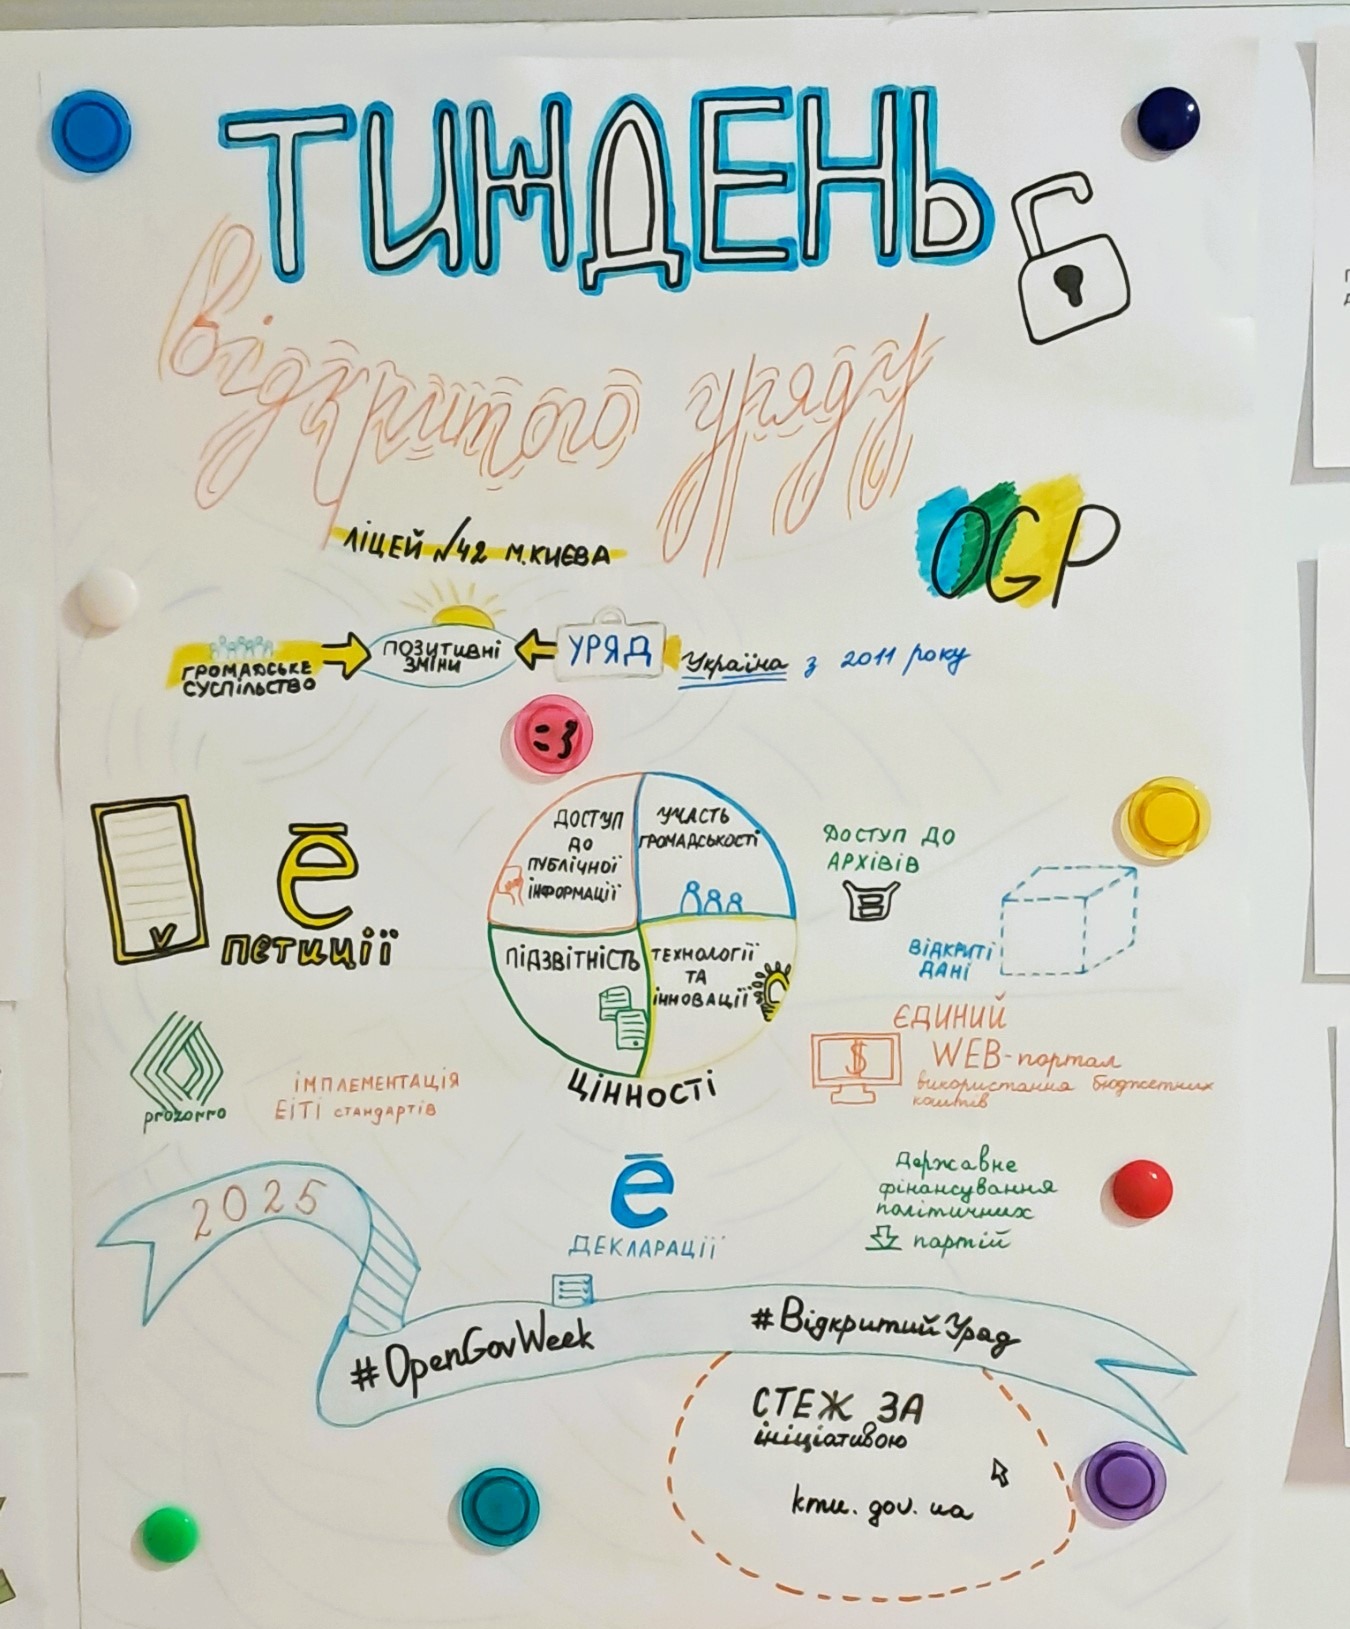 ТИЖДЕНЬ
відкритого уряду
OGP
ЛІЦЕЙ №42 М.КИЄВА
ГРОМАДСЬКЕ
СУСПІЛЬСТВО
ПОЗИТИВНІ
ЗМІНИ
УРЯД
Україна з 2011 року
ē
ПЕТИЦІЇ
ДОСТУП
ДО
ПУБЛІЧНОЇ
ІНФОРМАЦІЇ
УЧАСТЬ
ГРОМАДСЬКОСТІ
ПІДЗВІТНІСТЬ
ТЕХНОЛОГІЇ
ТА
ІННОВАЦІЇ
ЦІННОСТІ
ДОСТУП ДО
АРХІВІВ
ВІДКРИТІ
ДАНІ
prozorro
ІМПЛЕМЕНТАЦІЯ
ЕІТІ СТАНДАРТІВ
$
ЄДИНИЙ
WEB-портал
використання бюджетних
коштів
ē
ДЕКЛАРАЦІЇ
Державне
фінансування
політичних
партій
2025
#OpenGovWeek
#ВідкритийУряд
СТЕЖ ЗА
ініціативою
kmu.gov.ua